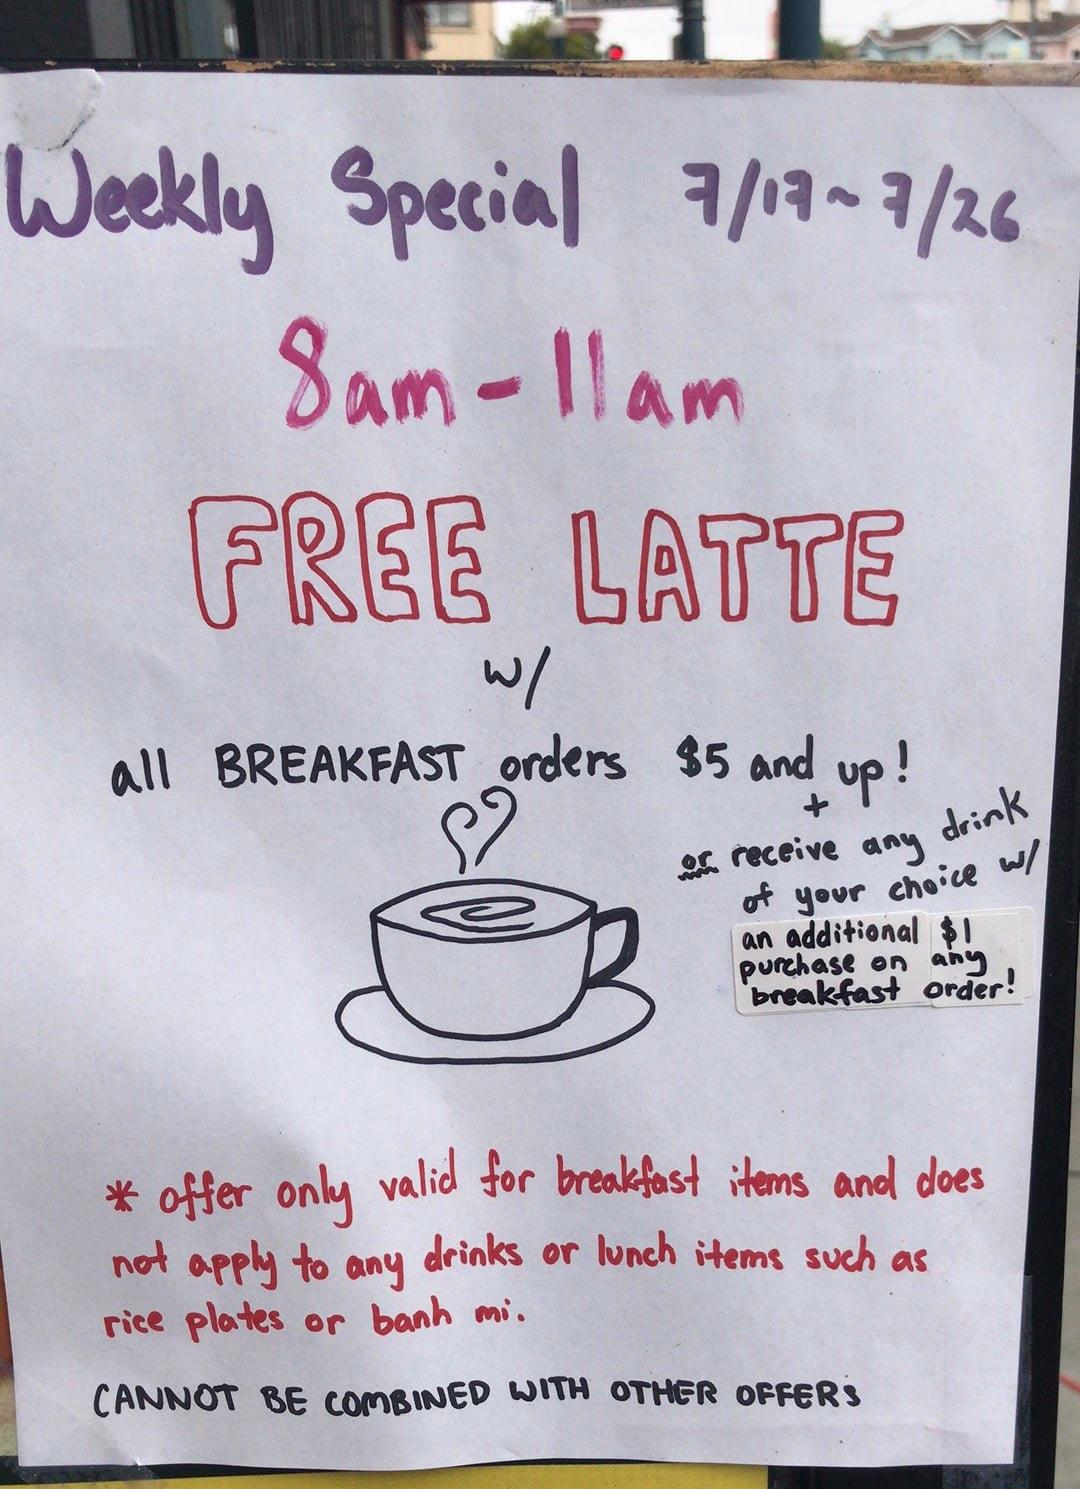 Weekly Special 7/17~7/26
8am-11am
FREE LATTE
w/
all BREAKFAST orders $5 and up!
+
or receive any drink
of your choice w/
an additional $1
purchase on any
breakfast order!
* offer only valid for breakfast items and does
not apply to any drinks or lunch items such as
rice plates or banh mi.
CANNOT BE COMBINED WITH OTHER OFFERS